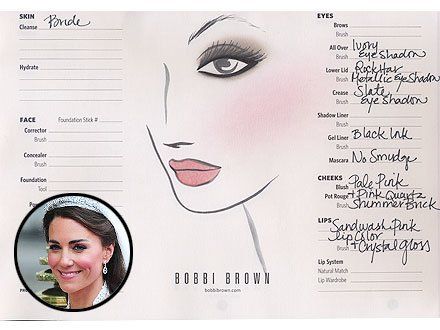 SKIN
Cleanse
Bride
Hydrate
FACE
Foundation Stick #
Corrector
Brush
Concealer
Brush
Foundation
Tool
EYES
Brows
Brush
All Over
Brush
Ivory
Eye Shadow
Lower Lid
Brush
Rockstar
Metallic Eye Shadow
Crease
Brush
Slate
Eye Shadow
Shadow Liner
Brush
Gel Liner
Brush
Black Ink
Mascara
No Smudge
CHEEKS
Blush
Brush
Pale Pink
Pot Rouge
+ Pink Quartz
Brush
Shimmer Brick
LIPS
Sandwash Pink
Lip Color
Brush
+ Crystal gloss
Lip System
Natural Match
Lip Wardrobe
BOBBI BROWN
bobbibrown.com